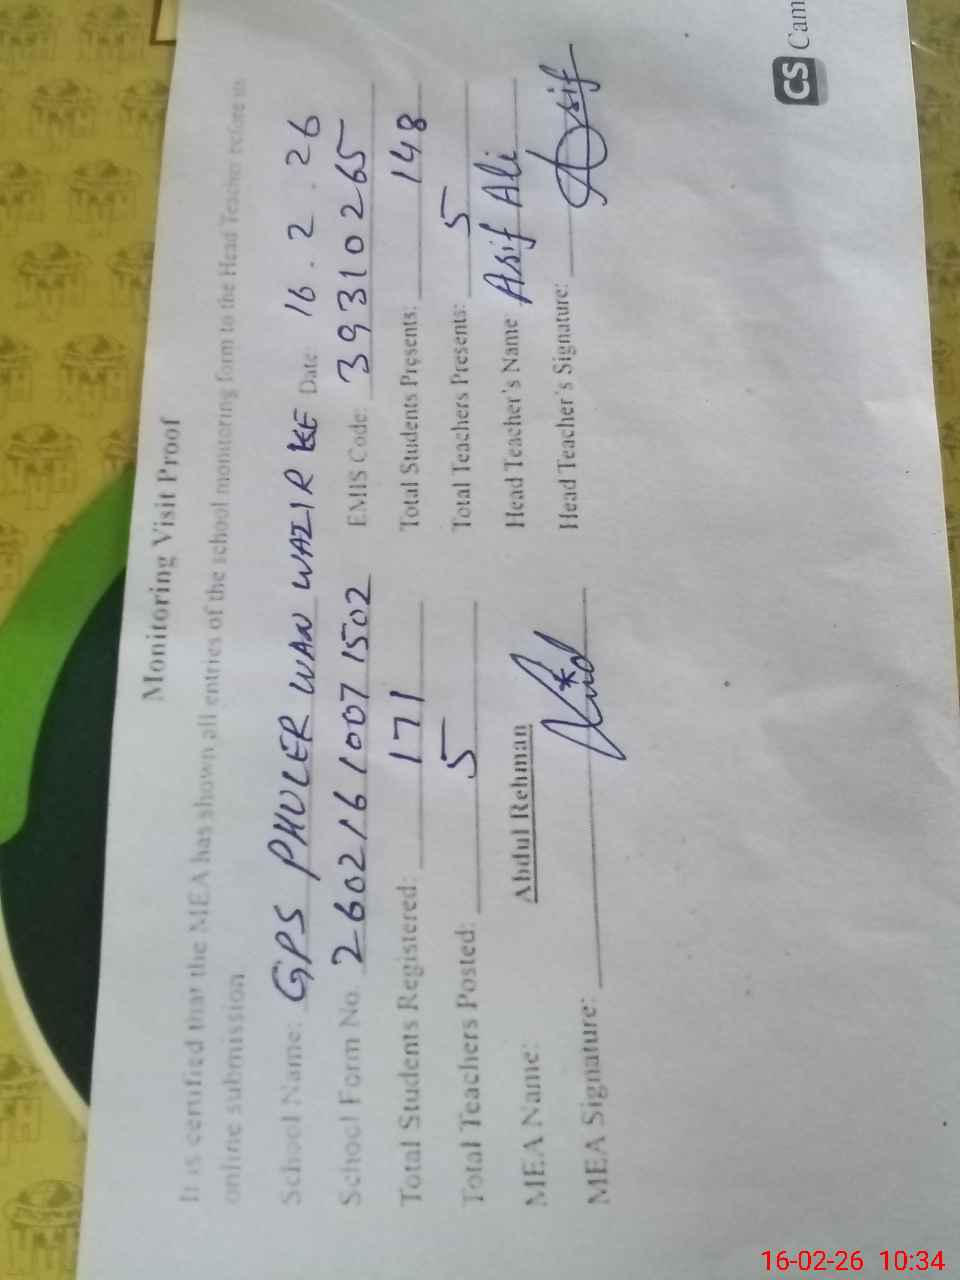 Monitoring Visit Proof
It is certified that the MEA has shown all entries of the school monitoring form to the Head Teacher before its
online submission.
School Name: GPS PHULER WAN WAZIR KE Date: 16.2.26
School Form No. 26021610071502 EMIS Code: 39310265
Total Students Registered: 171 Total Students Presents: 148
Total Teachers Posted: 5 Total Teachers Presents: 5
MEA Name: Abdul Rehman Head Teacher's Name: Asif Ali
MEA Signature: Head Teacher's Signature: Asif
CS Cam
16-02-26 10:34